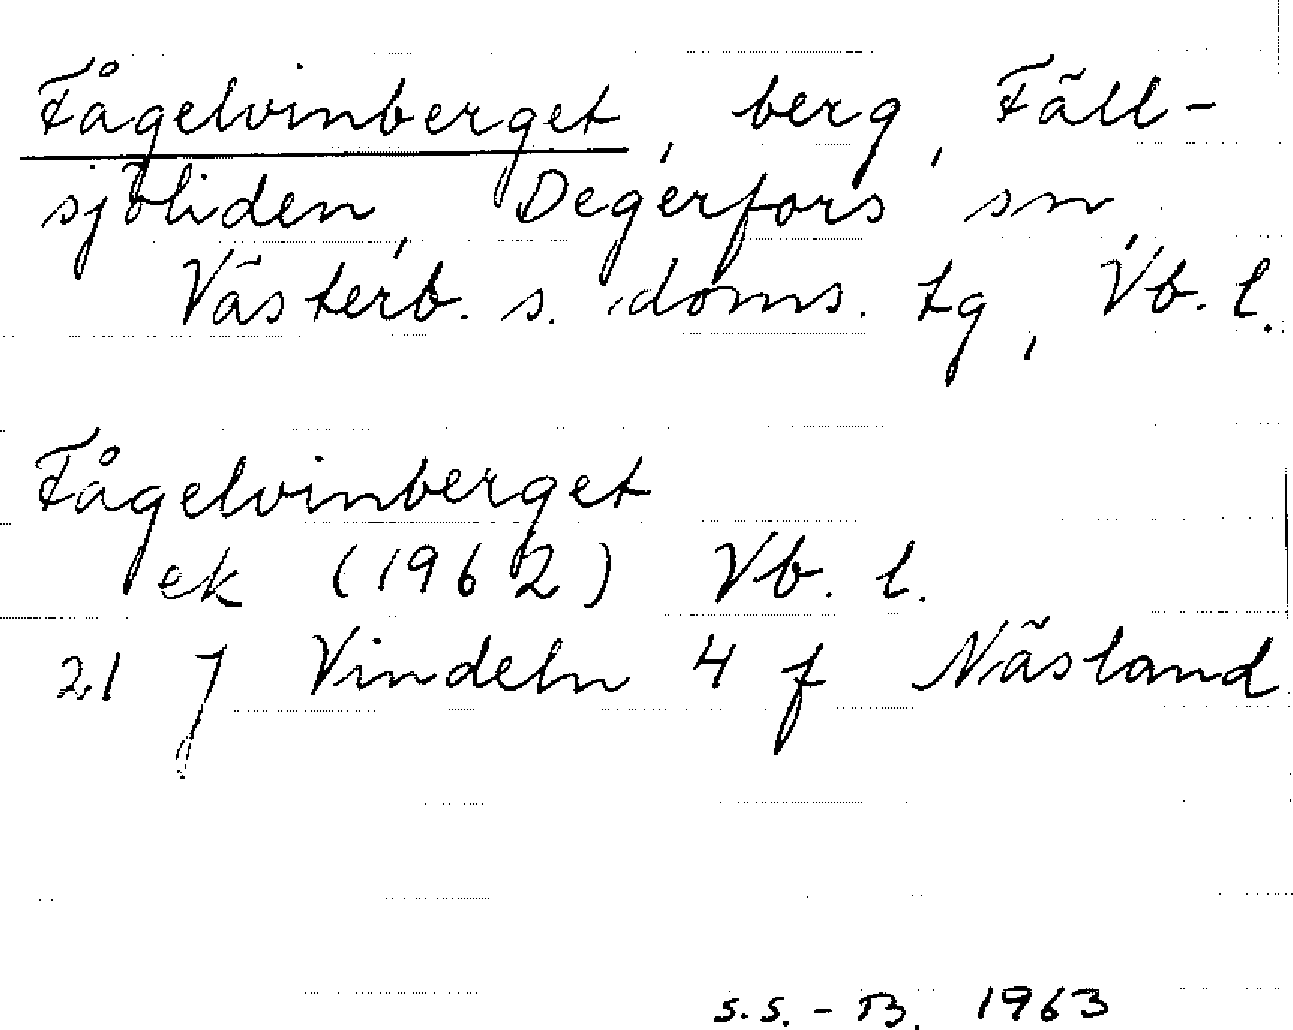 Fågelvinberget, berg, Fäll-
sjöliden, Degerfors sn,
Västerb. s. doms. tg, Vb. l.
Fågelvinberget
ek (1962) Vb. l.
21 J Vindeln 4 f Näsland
S.S.-B. 1963